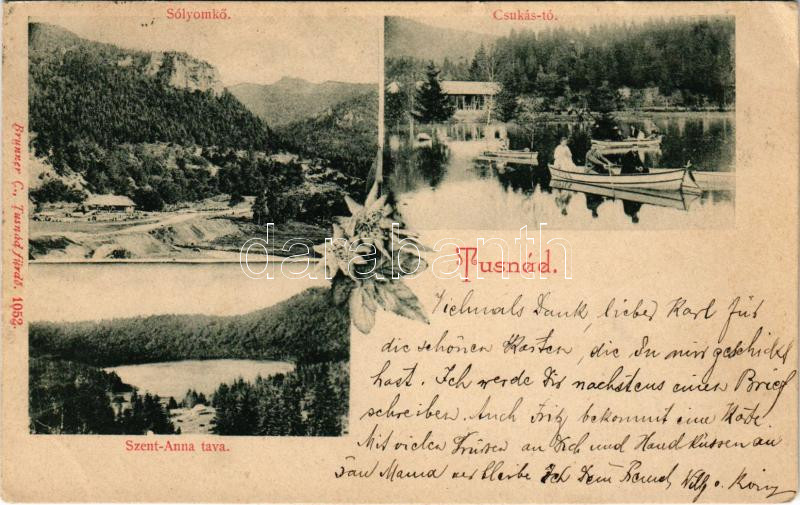 Sólyomkő.
Csukás-tó.
Brunner C., Tusnád fürdő. 1052.
darabanth
Tusnád.
Szent-Anna tava.
Vielmals Dank, lieber Karl für
die schönen Karten, die Du mir geschickt
hast. Ich werde Dir nächstens einen Brief
schreiben. Auch Fritz bekommt eine Karte.
Mit vielen Grüssen an Dich und Handküssen an
Mama verbleibe Ich Dein Freund Willy